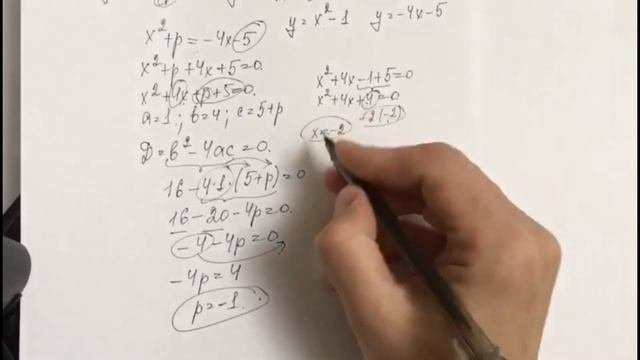 y = x² - 1 y = -4x - 5
x² + p = -4x - 5
x² + p + 4x + 5 = 0.
x² + 4x + p + 5 = 0.
a = 1; b = 4; c = 5 + p
D = b² - 4ac = 0.
16 - 4·1·(5+p) = 0
16 - 20 - 4p = 0.
-4 - 4p = 0
-4p = 4
p = -1.
x² + 4x - 1 + 5 = 0
x² + 4x + 4 = 0
-2 (-2)
x = -2